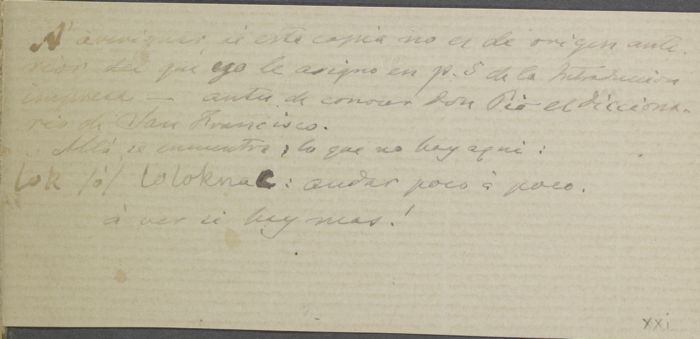 N' averiguar si esta copia no es de origen ante-
rior del que yo le asigno en p. 5 de la Introduccion
impresa — antes de conocer Don Pio el dicciona-
rio de San Francisco.
Allá se encuentra, lo que no hay aqui:
lok /ó/ loloknac: andar poco á poco.
á ver si hay mas!
xxi